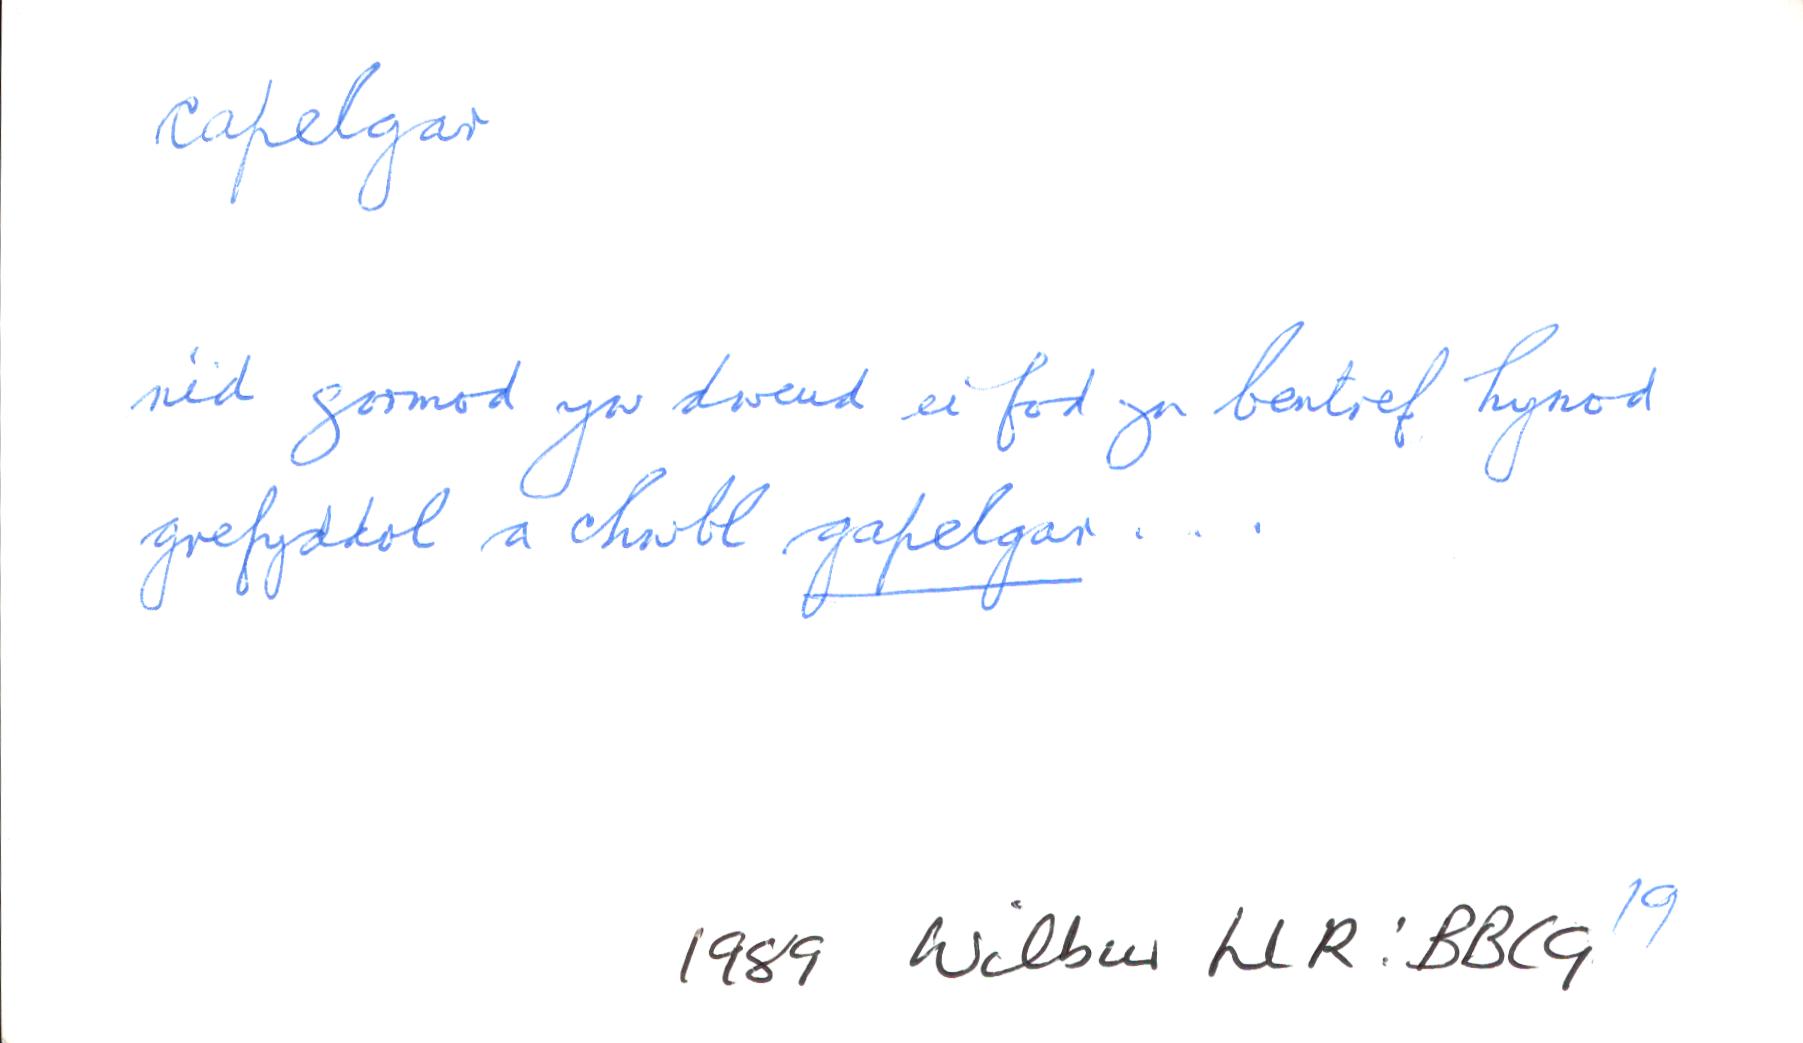 capelgar
nid gormod yw dweud ei fod yn bentref hynod
grefyddol a chwbl gapelgar . . .
1989 Wilbur Ll R : BBCG 19